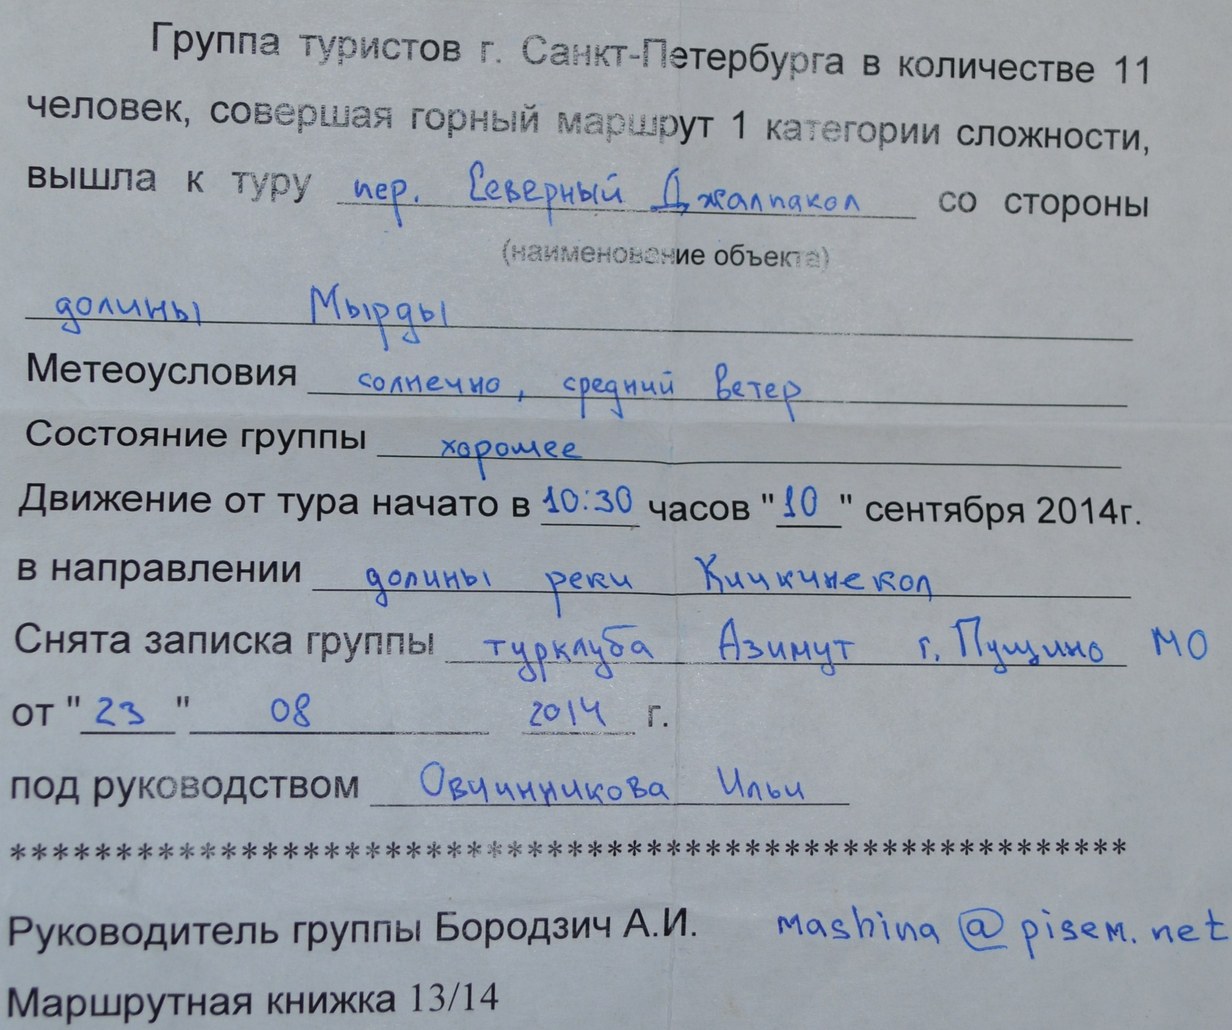 Группа туристов г. Санкт-Петербурга в количестве 11
человек, совершая горный маршрут 1 категории сложности,
вышла к туру пер. Северный Джалпакол со стороны
(наименование объекта)
долины Мырды
Метеоусловия солнечно, средний ветер
Состояние группы хорошее
Движение от тура начато в 10:30 часов "10" сентября 2014г.
в направлении долины реки Кичкинекол
Снята записка группы турклуба Азимут г. Пущино МО
от "23" 08 2014 г.
под руководством Овчинникова Ильи
*****************************************************
Руководитель группы Бородзич А.И. mashina@pisem.net
Маршрутная книжка 13/14